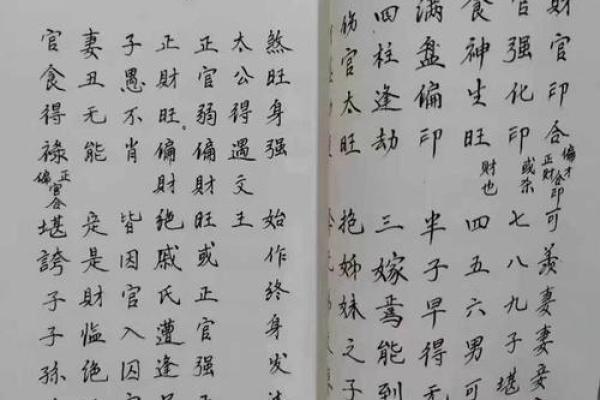 財官印合偏才正財合印可羡妻妻妾
官强化印或杀七八九子堪
食神生旺財也四五六男可
满盘偏印 半子早得无
四柱逢劫 三嫁焉能到
伤官太旺 抱姊妹之子
煞旺身强 始作终身发
太公得遇文王
正官弱偏財旺或正官强
正財旺。偏財绝戚氏遭逢
子愚不肖 皆因官入囚
妻丑无能 定是財临绝
官食得禄正偏官合堪誇子子孫